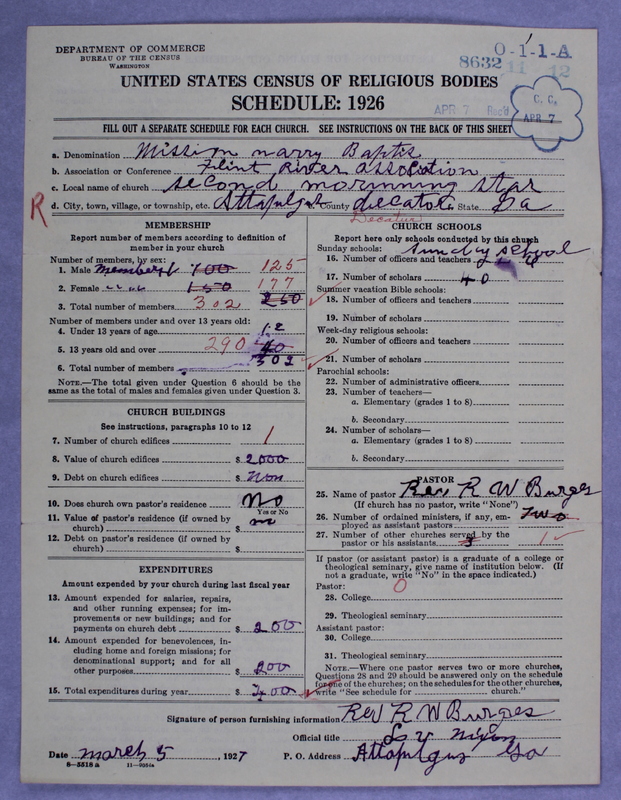 DEPARTMENT OF COMMERCE
BUREAU OF THE CENSUS
WASHINGTON
8632
O-1-1-A
11 12
UNITED STATES CENSUS OF RELIGIOUS BODIES
SCHEDULE: 1926
APR 7 Rec'd
C. C.
APR 7
FILL OUT A SEPARATE SCHEDULE FOR EACH CHURCH. SEE INSTRUCTIONS ON THE BACK OF THIS SHEET
a. Denomination Mission narry Baptis
b. Association or Conference Flint River assocition
c. Local name of church second mornning star
R
d. City, town, village, or township, etc. Attapulgus County decator State Ga
Decatur
MEMBERSHIP
Report number of members according to definition of
member in your church
Number of members, by sex:
1. Male members 100 125
2. Female 150 177
3. Total number of members 302 250
Number of members under and over 13 years old:
4. Under 13 years of age 12
5. 13 years old and over 290 40
6. Total number of members 302
NOTE.—The total given under Question 6 should be the
same as the total of males and females given under Question 3.
CHURCH BUILDINGS
See instructions, paragraphs 10 to 12
7. Number of church edifices 1
8. Value of church edifices $ 2000
9. Debt on church edifices $ Non
10. Does church own pastor's residence No
Yes or No
11. Value of pastor's residence (if owned by
church) $
12. Debt on pastor's residence (if owned by
church) $
EXPENDITURES
Amount expended by your church during last fiscal year
13. Amount expended for salaries, repairs,
and other running expenses; for im-
provements or new buildings; and for
payments on church debt $ 200
14. Amount expended for benevolences, in-
cluding home and foreign missions; for
denominational support; and for all
other purposes $ 200
15. Total expenditures during year $ 400
CHURCH SCHOOLS
Report here only schools conducted by this church
Sunday schools: Sunday school
16. Number of officers and teachers 6
17. Number of scholars 40
Summer vacation Bible schools:
18. Number of officers and teachers
19. Number of scholars
Week-day religious schools:
20. Number of officers and teachers
21. Number of scholars
Parochial schools:
22. Number of administrative officers
23. Number of teachers—
a. Elementary (grades 1 to 8)
b. Secondary
24. Number of scholars—
a. Elementary (grades 1 to 8)
b. Secondary
PASTOR
25. Name of pastor Rev. R W Burges
(If church has no pastor, write "None")
26. Number of ordained ministers, if any, em-
ployed as assistant pastors Two
27. Number of other churches served by the
pastor or his assistants 3 1
If pastor (or assistant pastor) is a graduate of a college or
theological seminary, give name of institution below. (If
not a graduate, write "No" in the space indicated.)
Pastor: 0
28. College
29. Theological seminary
Assistant pastor:
30. College
31. Theological seminary
NOTE.—Where one pastor serves two or more churches,
Questions 28 and 29 should be answered only on the schedule
for one of the churches; on the schedules for the other churches,
write "See schedule for church."
Signature of person furnishing information Rev R W Burges
Official title L. V. Nixon
Date march 5, 1927 P. O. Address Attapulgus Ga
8—5518 a